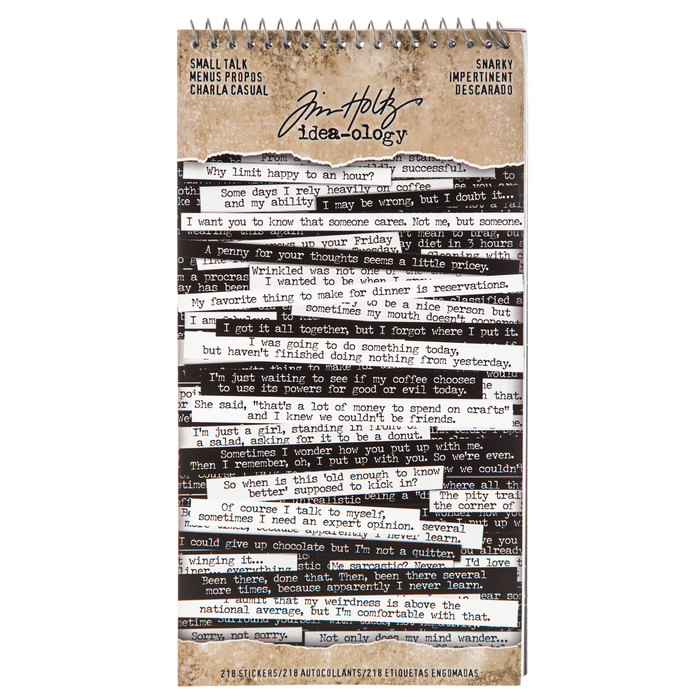 SMALL TALK
MENUS PROPOS
CHARLA CASUAL
SNARKY
IMPERTINENT
DESCARADO
Tim Holtz
idea-ology
From a
wildly successful.
Why limit happy to an hour?
Some days I rely heavily on coffee
and my ability
I may be wrong, but I doubt it...
I want you to know that someone cares. Not me, but someone.
wearing this again
mean to brag, but
up your Friday
diet in 3 hours
Tuesday.
A penny for your thoughts seems a little pricey.
Wrinkled was not one of the
I wanted to be when I
a procras
day has been
My favorite thing to make for dinner is reservations.
to be a nice person but
sometimes my mouth doesn't cooperate
I am
I got it all together, but I forgot where I put it.
I was going to do something today,
but haven't finished doing nothing from yesterday.
I'm just waiting to see if my coffee chooses
to use its powers for good or evil today.
She said, "that's a lot of money to spend on crafts"
and I knew we couldn't be friends.
I'm just a girl, standing in front of
a salad, asking for it to be a donut.
Sometimes I wonder how you put up with me.
Then I remember, oh, I put up with you. So we're even.
So when is this 'old enough to know
better' supposed to kick in?
where all th
The pity train
the corner of
being a "di
Of course I talk to myself,
sometimes I need an expert opinion.
several
more times, because apparently I never learn.
I could give up chocolate but I'm not a quitter.
winging it...
everything
Me sarcastic? Never.
I'd love t
Been there, done that. Then, been there several
more times, because apparently I never learn.
I admit that my weirdness is above the
national average, but I'm comfortable with that.
Surround yourself with tacos, not
Sorry, not sorry.
Not only does my mind wander...
218 STICKERS/218 AUTOCOLLANTS/218 ETIQUETAS ENGOMADAS